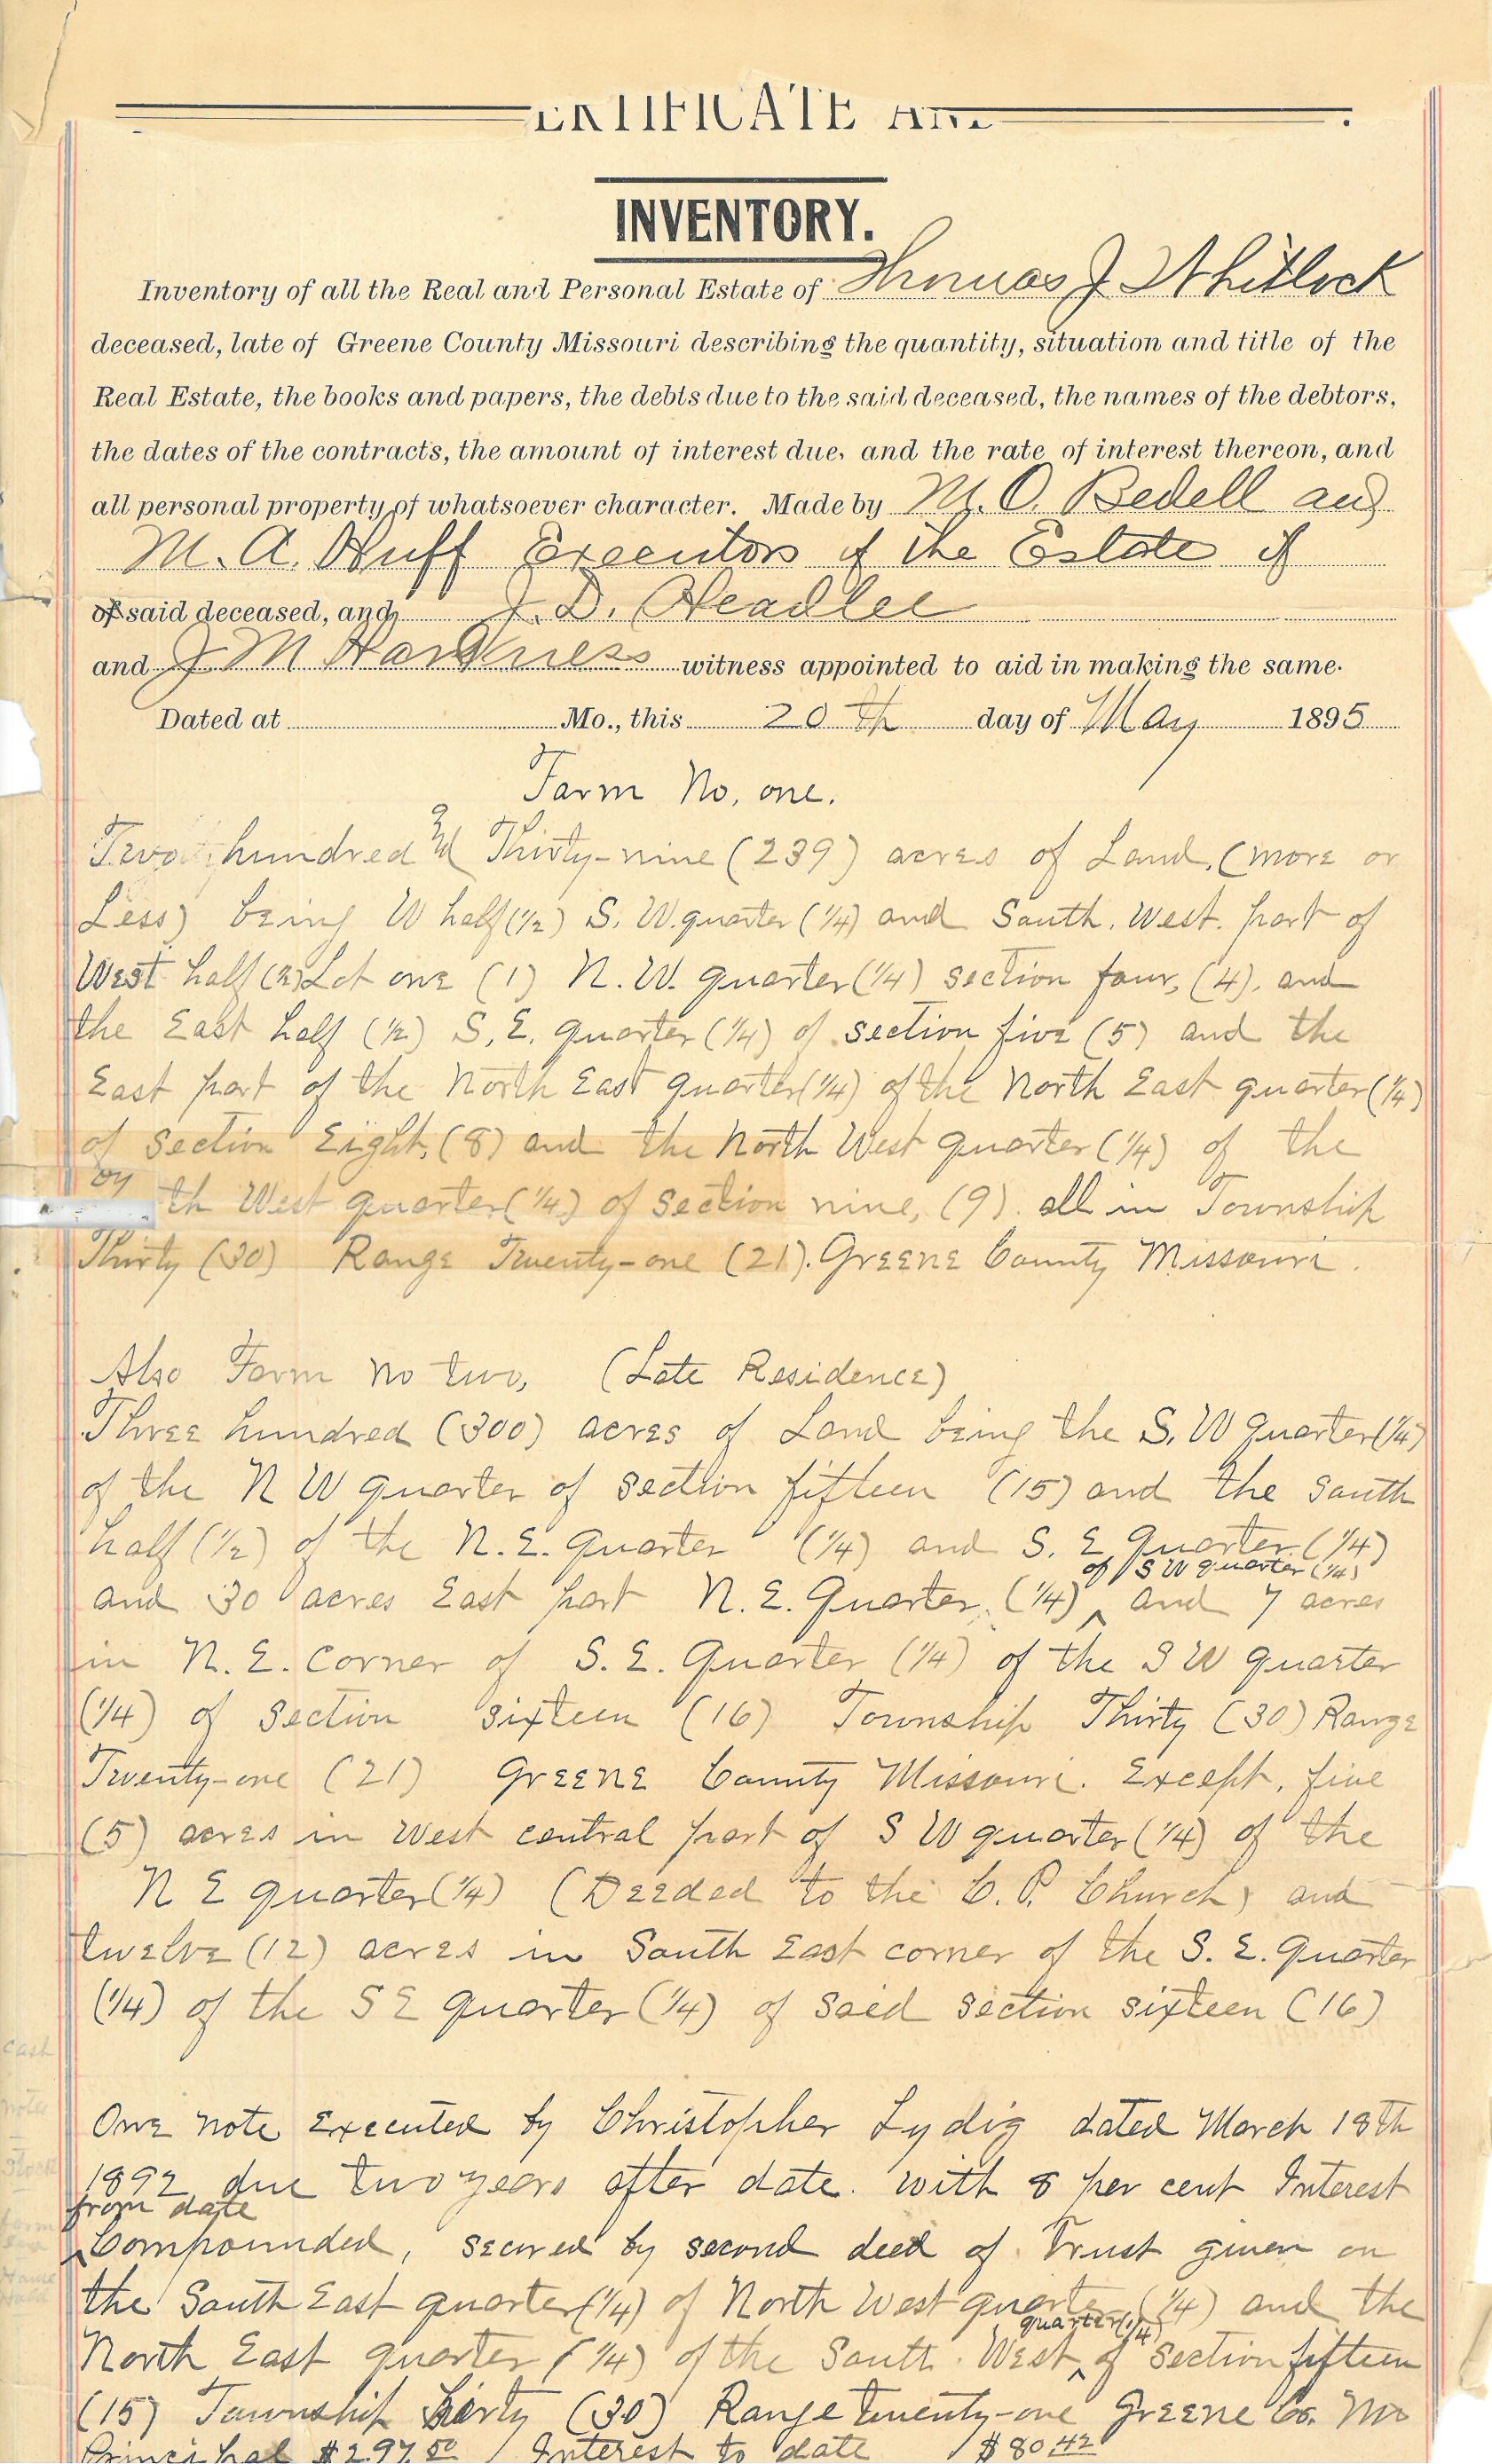 ERTIFICATE AND
INVENTORY.
Inventory of all the Real and Personal Estate of Thomas J Whitlock
deceased, late of Greene County Missouri describing the quantity, situation and title of the
Real Estate, the books and papers, the debts due to the said deceased, the names of the debtors,
the dates of the contracts, the amount of interest due, and the rate of interest thereon, and
all personal property of whatsoever character. Made by M. O. Bedell and
M. A. Huff Executors of the Estate of
of said deceased, and J. D. Headlee
and J M Harkness witness appointed to aid in making the same.
Dated at Mo., this 20th day of May 1895
Farm No. one.
Two hundred & Thirty-nine (239) acres of Land, (more or
Less) being W half (1/2) S. W. quarter (1/4) and South. West. part of
West half (2) Lot one (1) N. W. quarter (1/4) section four, (4), and
the East half (1/2) S. E. quarter (1/4) of section five (5) and the
East part of the North East quarter (1/4) of the North East quarter (1/4)
of section Eight, (8) and the North West quarter (1/4) of the
th West quarter (1/4) of section nine, (9). all in Township
Thirty (30) Range Twenty-one (21). Greene County Missouri.
Also Farm No two, (Late Residence)
Three hundred (300) acres of Land being the S. W quarter (1/4)
of the N W quarter of section fifteen (15) and the South
half (1/2) of the N. E. quarter (1/4) and S. E quarter (1/4)
of S W quarter (1/4)
and 30 acres East part N. E. Quarter, (1/4) ^ and 7 acres
in N. E. Corner of S. E. Quarter (1/4) of the S W quarter
(1/4) of section sixteen (16) Township Thirty (30) Range
Twenty-one (21) Greene County Missouri. Except, five
(5) acres in West central part of S W quarter (1/4) of the
N E quarter (1/4) (Deeded to the C. P. Church) and
twelve (12) acres in South East corner of the S. E. quarter
(1/4) of the S E quarter (1/4) of said section sixteen (16)
One note Executed by Christopher Lydig dated March 18th
1892 due two years after date. with 8 per cent Interest
from date
^ Compounded, secured by second deed of Trust given on
the South East quarter (1/4) of North West quarter (1/4) and the
quarter (1/4)
North East quarter (1/4) of the South. West ^ of Section fifteen
(15) Township Thirty (30) Range twenty-one Greene Co. Mo
Principal $297.50 Interest to date $80 42